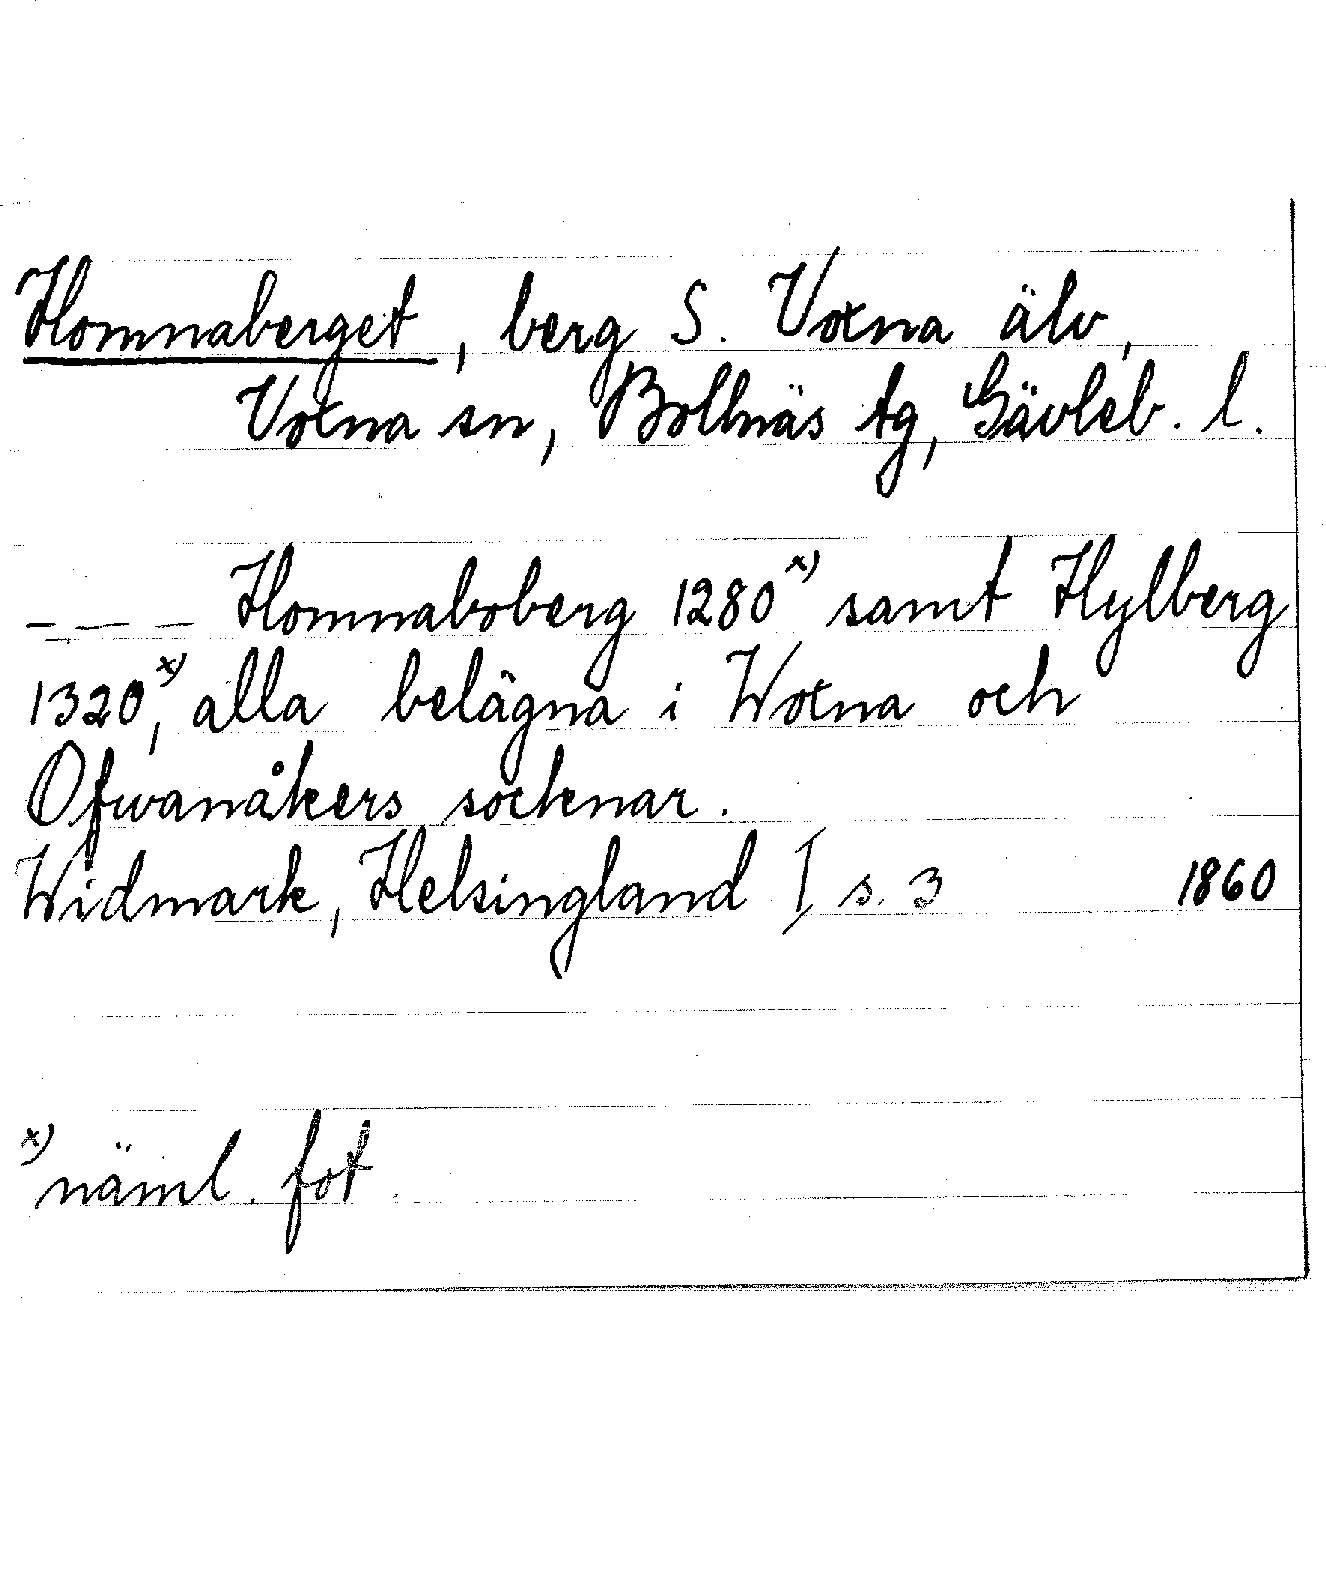 Homnaberget, berg S. Voxna älv,
Voxna sn, Bollnäs tg, Gävleb. l.
– – – – Homnaboberg 1280 x) samt Hylberg
1320 x), alla belägna i Woxna och
Ofwanåkers socknar.
Widmark, Helsingland I s. 3 1860
x) näml. fot.